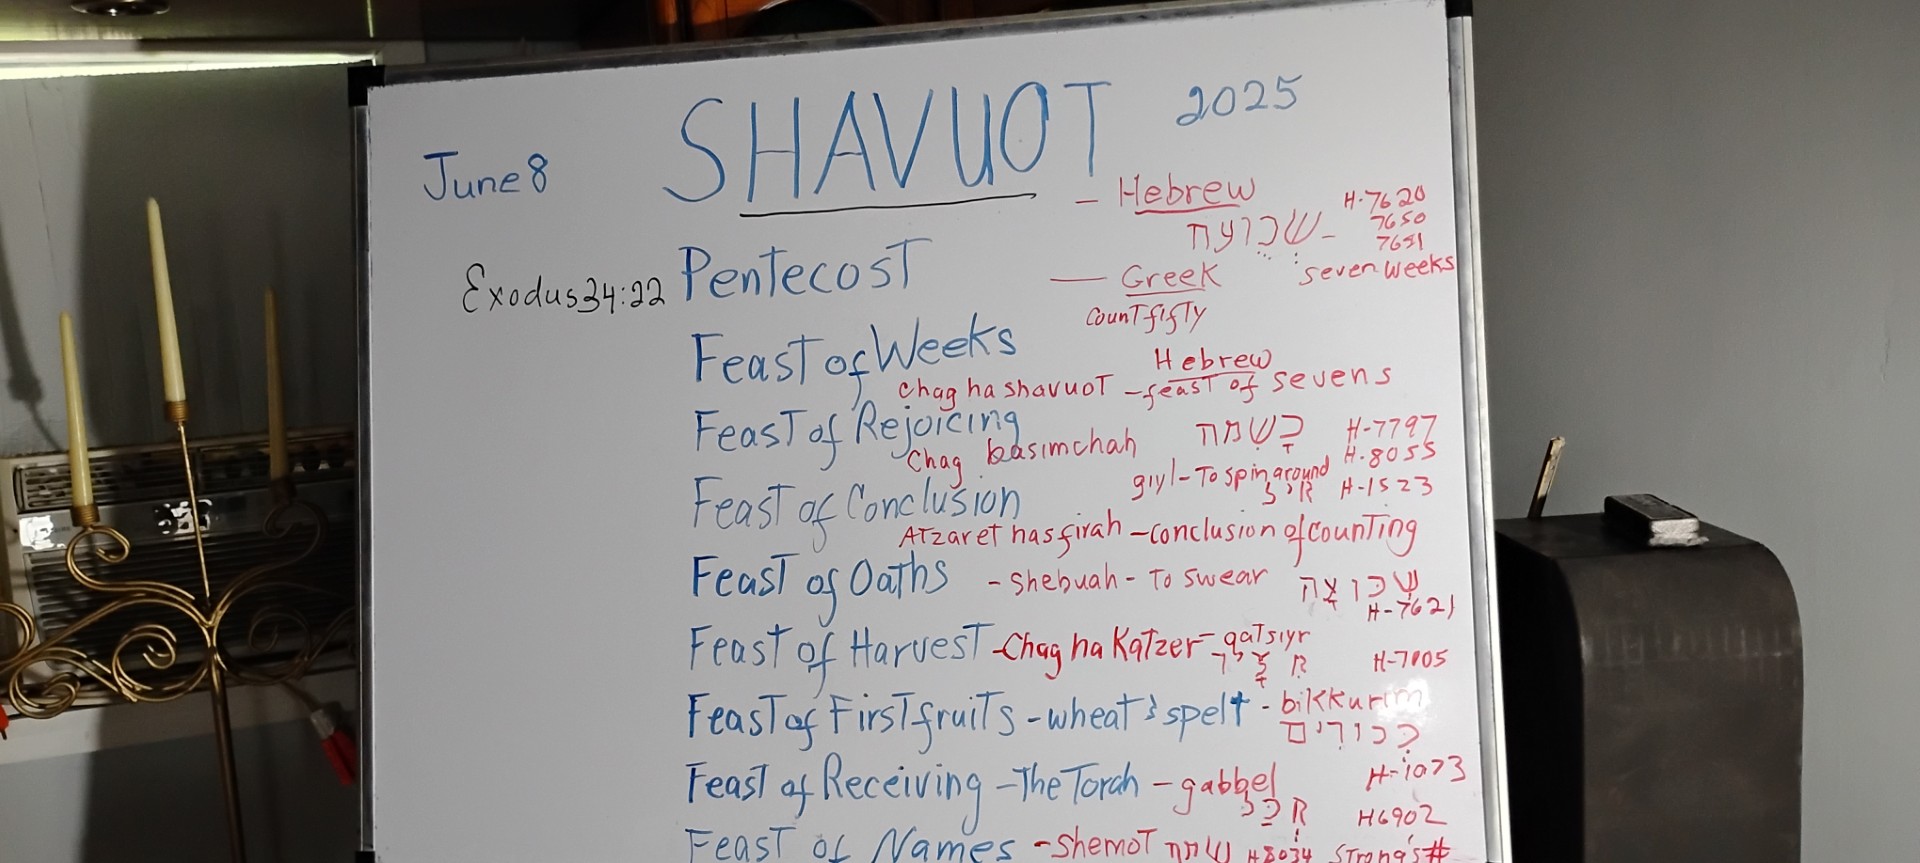 SHAVUOT 2025
June 8
- Hebrew H-7620
שבועה - 7650
7651
Exodus 34:22 Pentecost — Greek seven weeks
Count fifty
Feast of Weeks Hebrew
Chag ha shavuot - feast of sevens
Feast of Rejoicing בשמחה H-7797
Chag basimchah H-8055
giyl - To spin around
Feast of Conclusion H-1523
Atzaret hasfirah - conclusion of counting
Feast of Oaths - Shebuah - To swear שבועה
H-7621
Feast of Harvest - Chag ha Katzer - qatsiyr
H-7105
Feast of Firstfruits - wheat & spelt - bikkurim
בכורים
Feast of Receiving - The Torah - gabbel H-1073
H6902
Feast of Names - Shemot H8034 Strong's #